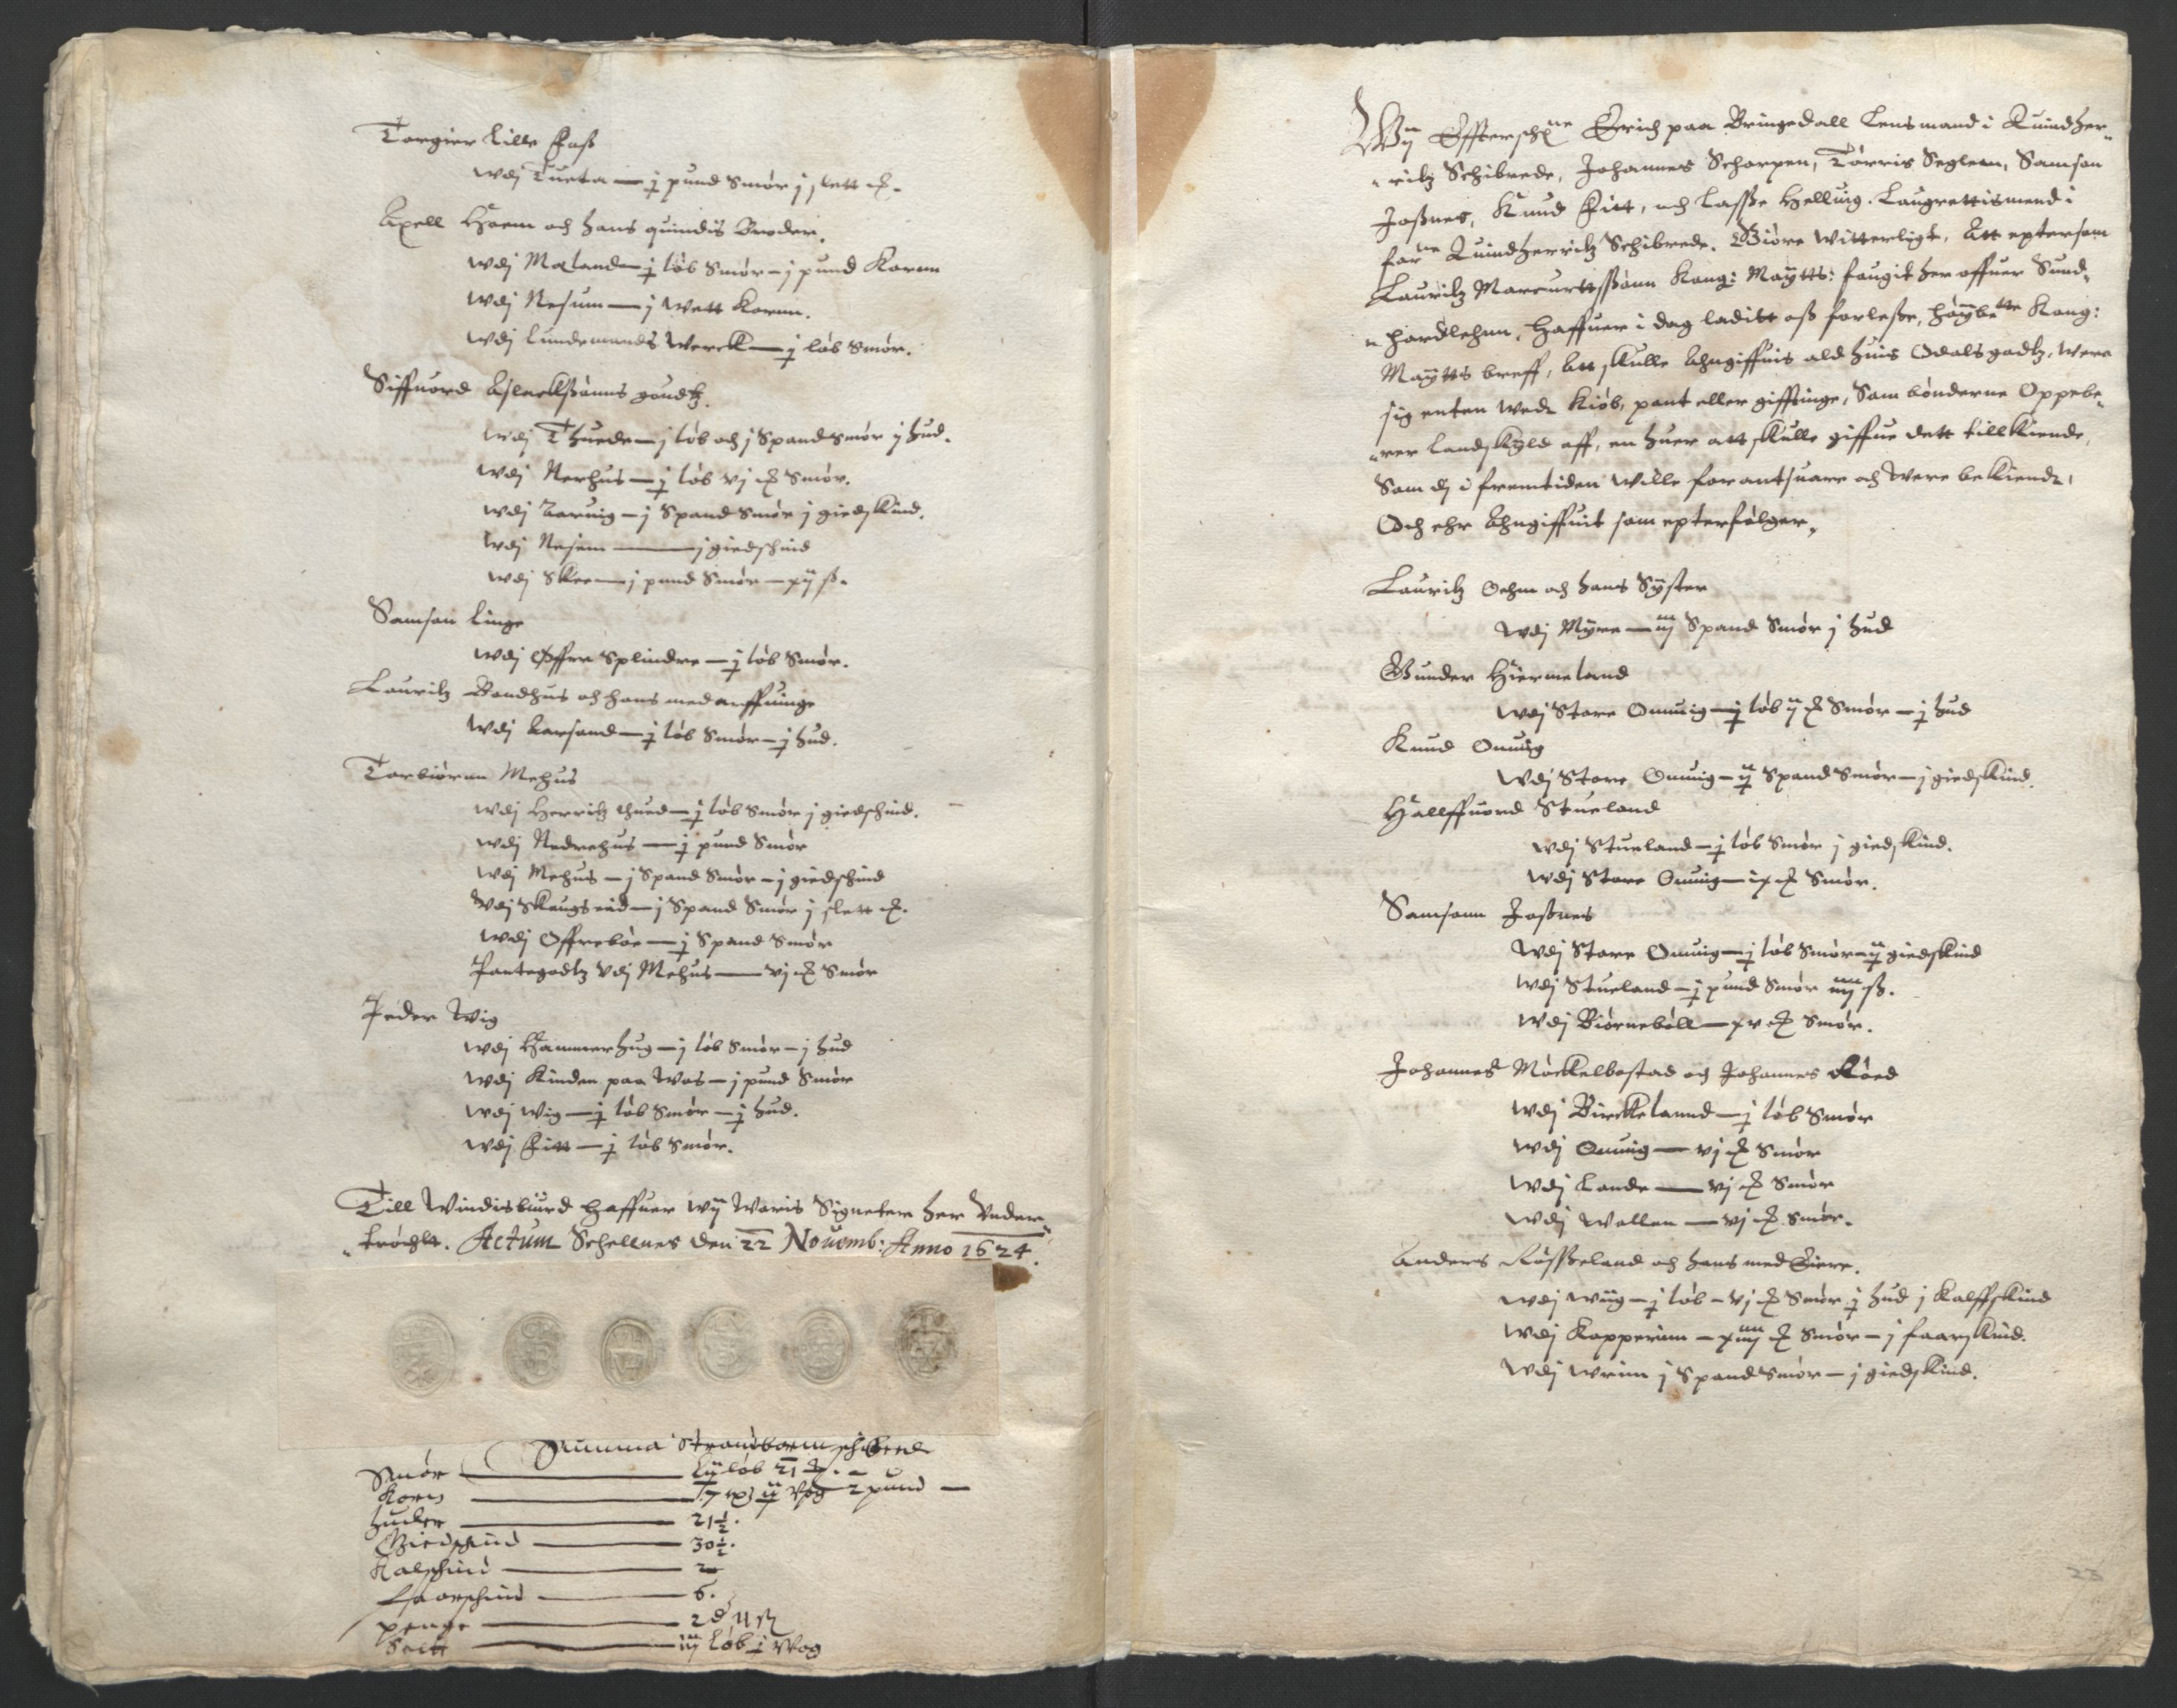 Torgier lille Faß
wdj Tueta — j pund Smør j slett
Axell Hoem och hans quindis Broder.
wdj Maland — j løb Smør — j pund Kornn
wdj Nesum — j Wett Kornn.
wdj Lundemands Werck — j løb Smør.
Siffuord Aslackßønns goudtz.
wdj Thuede — j løb och j Spand Smør j hud.
wdj Nerhus — j løb vj Smør.
wdj Baruig — j Spand Smør j giedskind.
wdj Nesem — j giedschind
wdj Skee — j pund Smør — xij ß.
Samson Linge
wdj Øffre Splindre — j løb Smør.
Lauritz Bondhus och hans medarffuinge
wdj Aarsand — j løb Smør — j hud.
Torbiørnn Mehus
wdj Herritz thued — j løb Smør j giedschind.
wdj Nedrehus — j pund Smør
wdj Mehus — j Spand Smør — j giedschind
Vdj Skeugseid — j Spand Smør j slett
wdj Offrebøe — j Spand Smør
Pantegodtz Vdj Mehus — vj Smør
Peder Wig
wdj Hammerhug — j løb Smør — j hud
wdj Kinden paa Wos — j pund Smør
wdj Wig — j løb Smør — j hud.
wdj Fitt — j løb Smør.
Till Windisbiurd Haffuer wij Woris Signeter her Vnder
trøcht. Actum Schellnes den 22 Nouemb: Anno 1624.
Summa Strandbarm schibrede
Smør — Lij løb 21
Korn — ij Vog 2 pund —
huder — 21½.
Giedschind — 30½.
Kalschind — 2
Faarschind — 6.
penge — 2 d 11 ß
Sallt — iij løb j Wog
Wij Effterschne Erich paa Bringedall Lensmand i Quindher-
ritz Schibrede, Johannes Scharpen, Tørris Seglem, Samson
Joßnes, Knud Fitt, och Lasße Helluig. Laugrettismend i
forne Quindherritz Schibrede. Giøre Witterligt, Att eptersom
Lauritz Marcurtsßønn Kong: Maytts: fougit her offuer Sund-
hordlehnn, Haffuer i dag laditt oß forleße, høybette Kong:
Maytts breff, Att skulle Ahngiffuis ald huis Odals godtz, were
sig enten wed Kiøb, pant eller giffting, Som bønderne Oppebe-
rer Landskyld aff, en huer att skulle giffue dett tillkiende,
Som dj i fremtiden Wille forantsuare och Were bekiendt,
Och ehr Ahngiffuit som epterfølger.
Lauritz Oehm och hans Syster
wdj Myre — iij Spand Smør j hud
Gunder Hiermeland
wdj Store Omuig — j løb ij Smør — j hud
Knud Omuig
wdj Store Omuig — ij Spand Smør — j giedskind.
Hallffuord Stueland
wdj Stueland — j løb Smør j giedskind.
wdj Store Omuig — ix Smør.
Samsonn Joßnes
wdj Store Omuig — j løb Smør — ij giedskind
wdj Stueland — j pund Smør iiij ß.
wdj Biørnebøll — xv Smør.
Johannes Møckelbostad och Johannes Røed
wdj Birckelannd — j løb Smør
wdj Omuig — vj Smør
wdj Lande — vj Smør
wdj Wallen — vj Smør.
Anders Røffßeland och hans med Eiere.
wdj Wiig — j løb — vj Smør j hud j Kalffskind
wdj Kopperinn — xiiij Smør — j faarskind.
wdj Wrinn j Spand Smør — j giedskind.
23